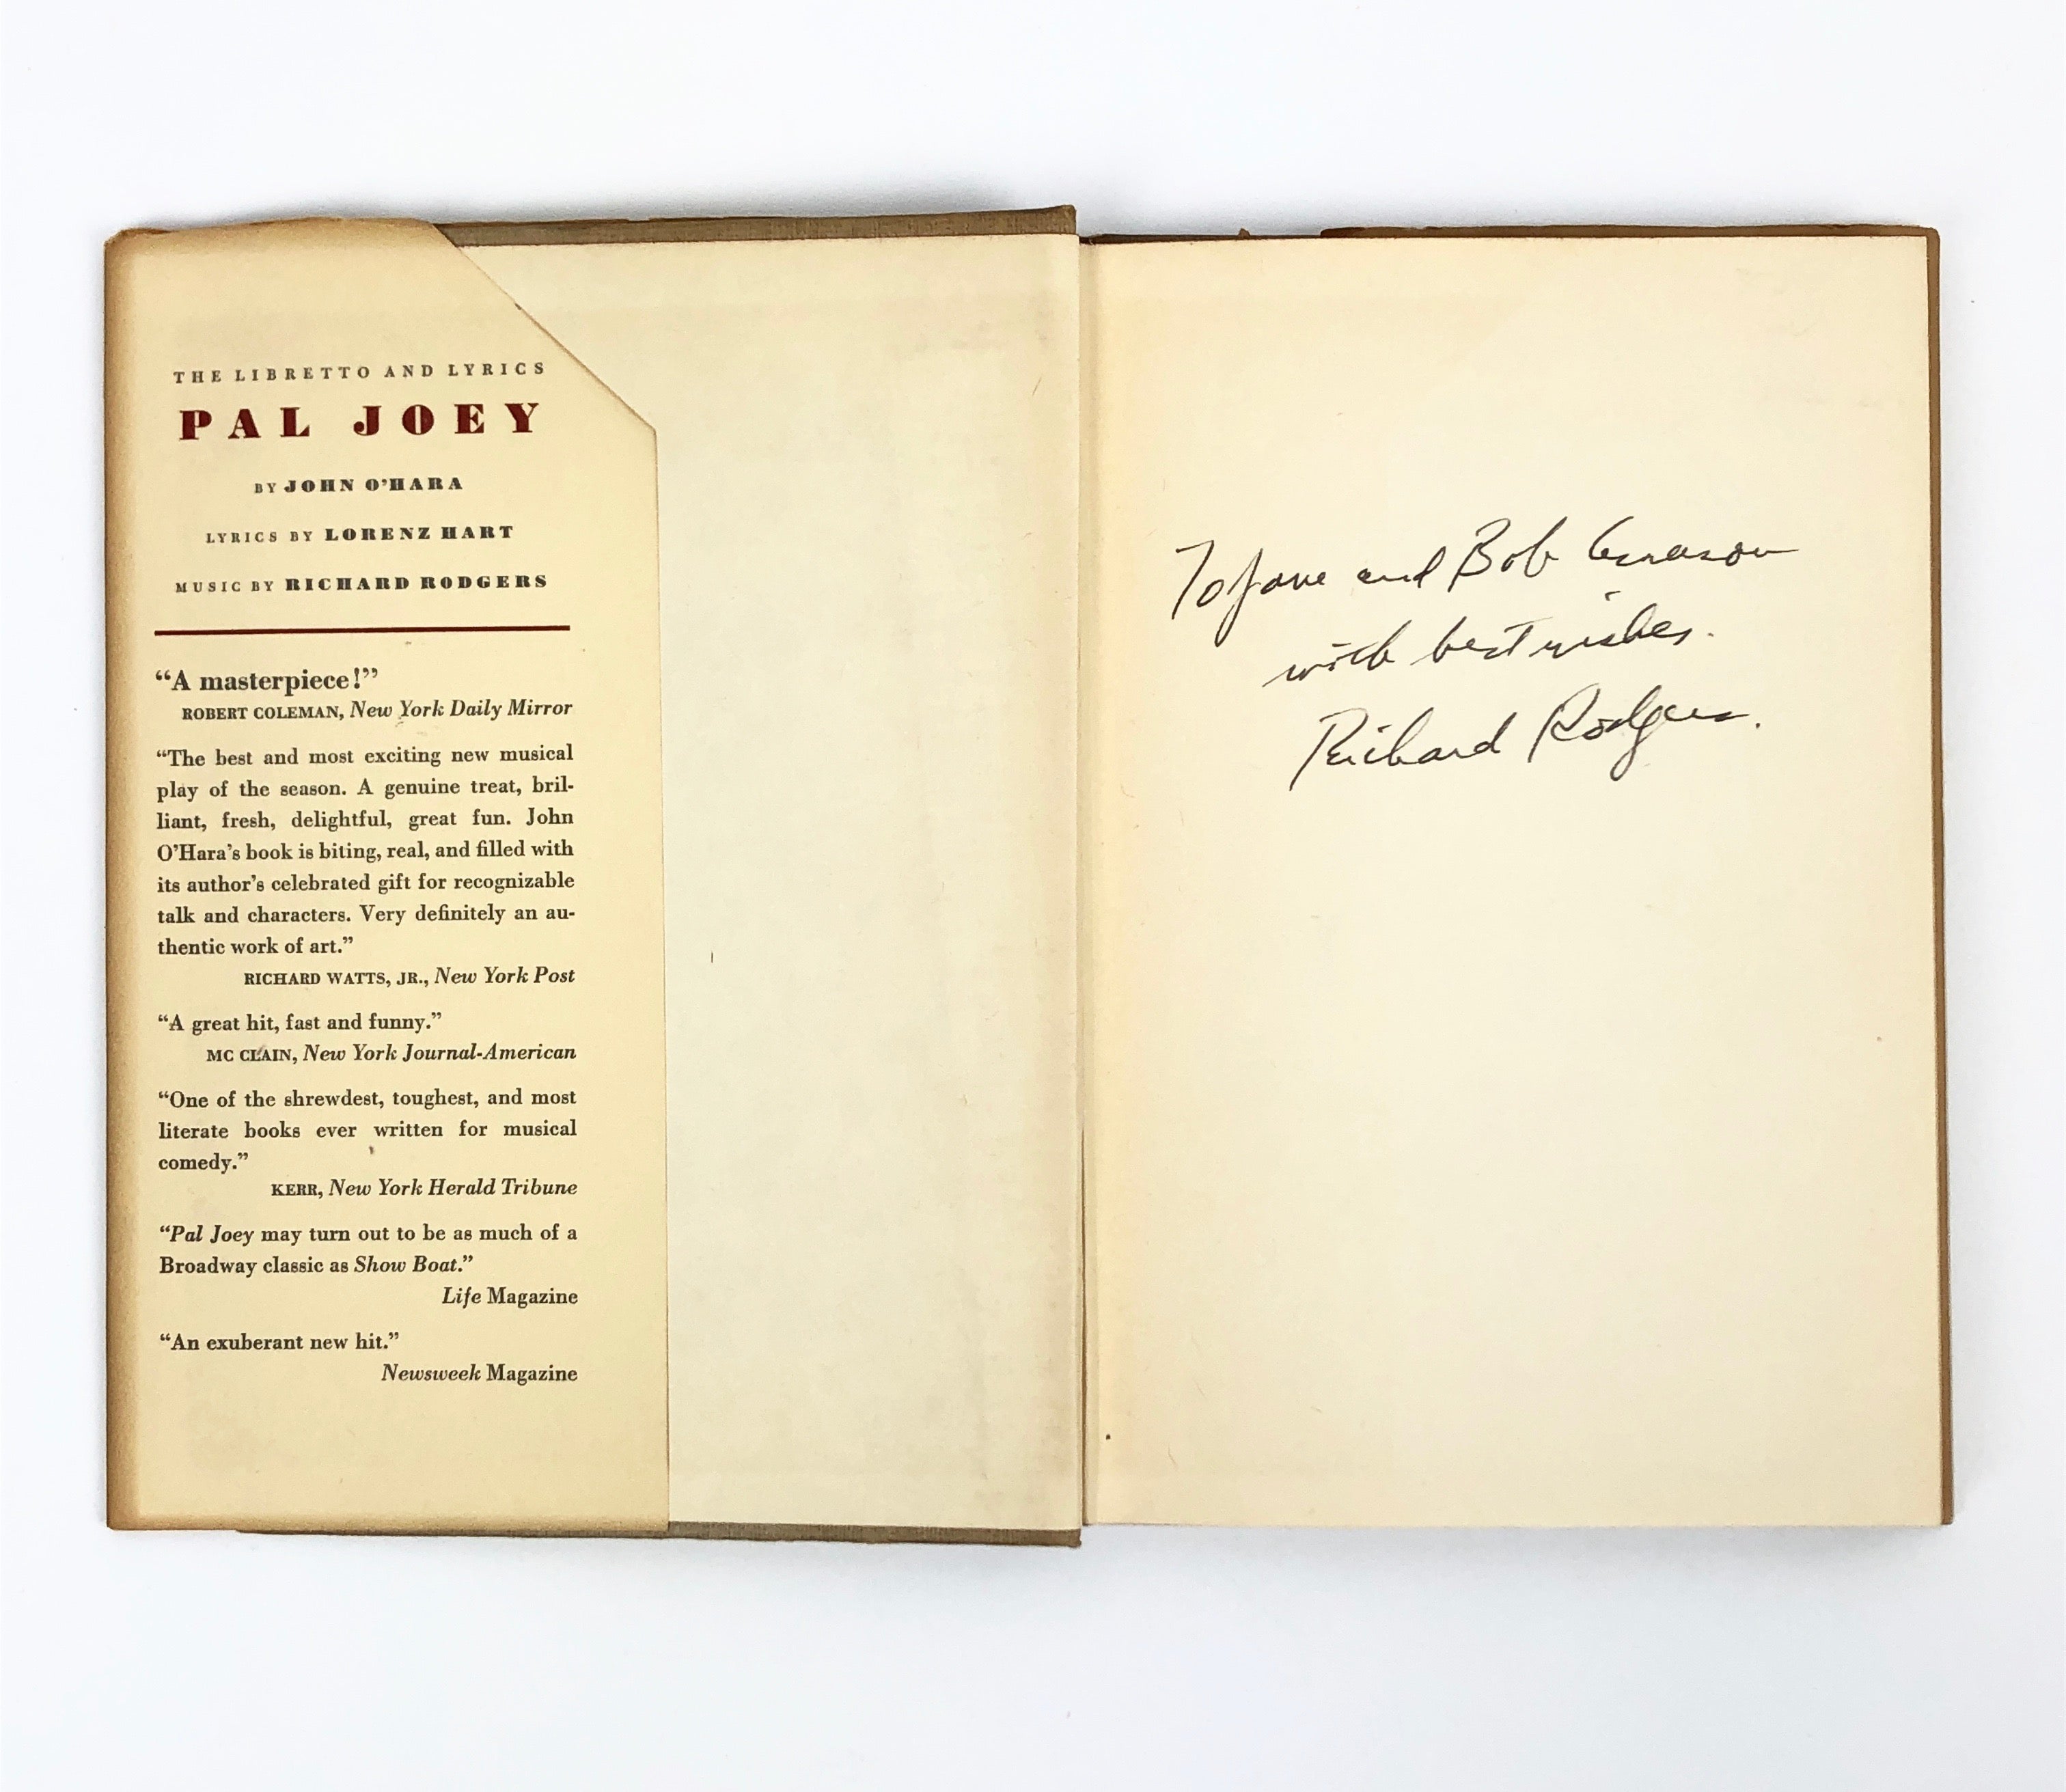 THE LIBRETTO AND LYRICS
PAL JOEY
BY JOHN O'HARA
LYRICS BY LORENZ HART
MUSIC BY RICHARD RODGERS
“A masterpiece!”
ROBERT COLEMAN, New York Daily Mirror
“The best and most exciting new musical
play of the season. A genuine treat, bril-
liant, fresh, delightful, great fun. John
O'Hara's book is biting, real, and filled with
its author's celebrated gift for recognizable
talk and characters. Very definitely an au-
thentic work of art.”
RICHARD WATTS, JR., New York Post
“A great hit, fast and funny.”
MC CLAIN, New York Journal-American
“One of the shrewdest, toughest, and most
literate books ever written for musical
comedy.”
KERR, New York Herald Tribune
“Pal Joey may turn out to be as much of a
Broadway classic as Show Boat.”
Life Magazine
“An exuberant new hit.”
Newsweek Magazine
To Jane and Bob
with best wishes.
Richard Rodgers.